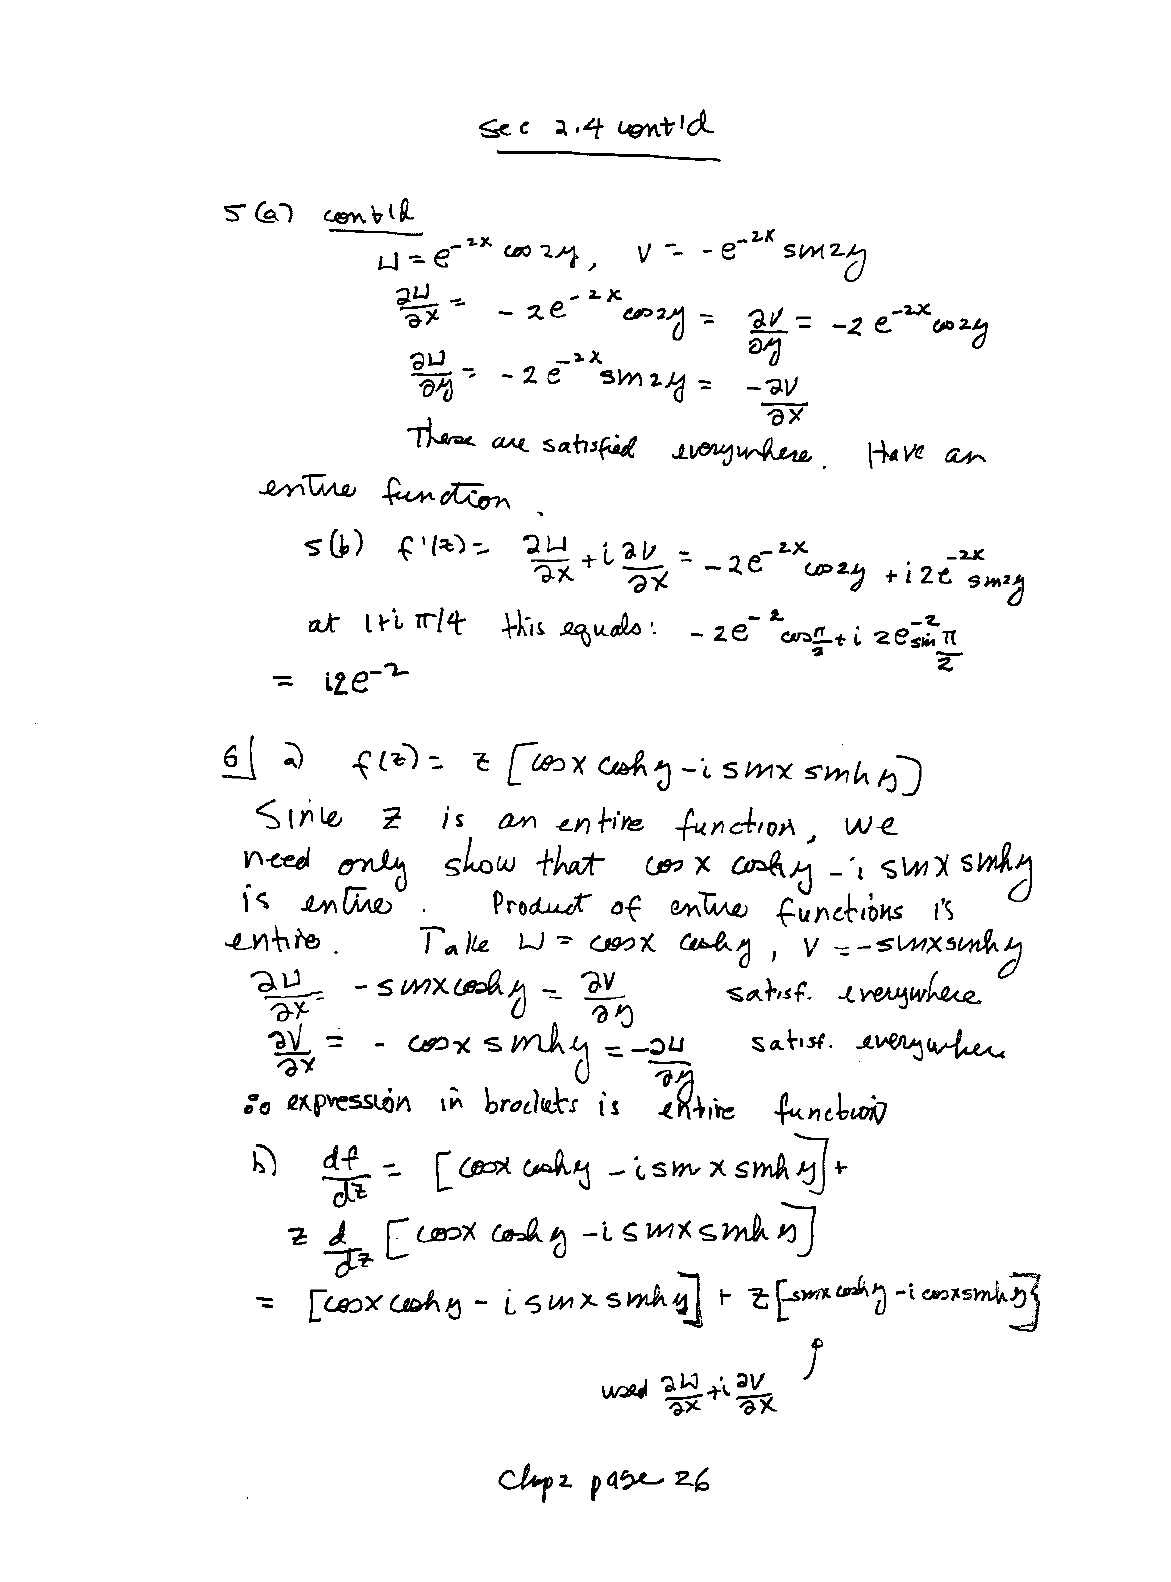 Sec 2.4 cont'd
5(a) cont'd
u = e^{-2x} cos 2y, v = -e^{-2x} sin 2y
∂u/∂x = -2e^{-2x} cos 2y = ∂v/∂y = -2 e^{-2x} cos 2y
∂u/∂y = -2e^{-2x} sin 2y = -∂v/∂x
These are satisfied everywhere. Have an
entire function.
5(b) f'(z) = ∂u/∂x + i ∂v/∂x = -2e^{-2x} cos 2y + i 2e^{-2x} sin 2y
at 1+i π/4 this equals: -2e^{-2} cos π/2 + i 2e^{-2} sin π/2
= i2e^{-2}
6] a) f(z) = z [cos x cosh y - i sin x sinh y]
Since z is an entire function, we
need only show that cos x cosh y - i sin x sinh y
is entire. Product of entire functions is
entire. Take u = cos x cosh y, v = -sin x sinh y
∂u/∂x = -sin x cosh y = ∂v/∂y satisf. everywhere
∂v/∂x = - cos x sinh y = -∂u/∂y satisf. everywhere
∴ expression in brackets is entire function
b) df/dz = [cos x cosh y - i sin x sinh y] +
z d/dz [cos x cosh y - i sin x sinh y]
= [cos x cosh y - i sin x sinh y] + z [-sin x cosh y - i cos x sinh y]
used ∂u/∂x + i ∂v/∂x
Chap 2 page 26